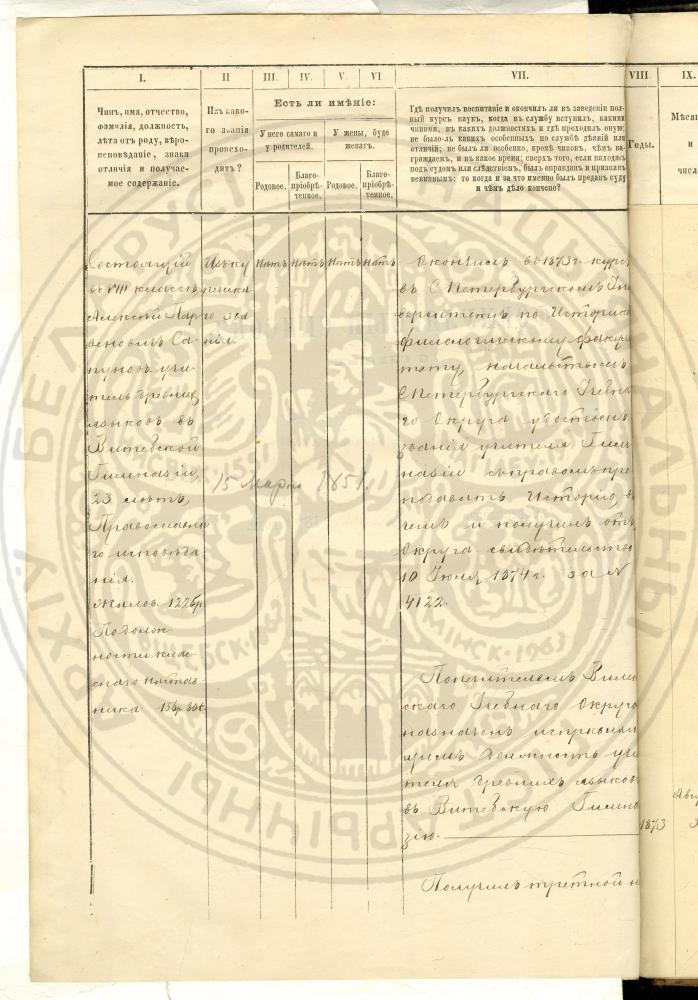 I.
II
III.
IV.
V.
VI
VII.
VIII
IX.
Чинъ, имя, отчество,
фамилія, должность,
лѣта отъ роду, вѣро-
исповѣданіе, знаки
отличія и получае-
мое содержаніе.
Изъ како-
го званія
происхо-
дитъ?
Есть ли имѣніе:
У него самаго и
у родителей.
У жены, буде
женатъ.
Родовое.
Благо-
пріобрѣ-
тенное.
Родовое.
Благо-
пріобрѣ-
тенное.
Гдѣ получилъ воспитаніе и окончилъ ли въ заведеніи пол-
ный курсъ наукъ, когда въ службу вступилъ, какими
чинами, въ какихъ должностяхъ и гдѣ проходилъ оную;
не было-ль какихъ особенныхъ по службѣ дѣяній или
отличій; не былъ ли особенно, кромѣ чиновъ, чѣмъ на-
граждаемъ, и въ какое время; сверхъ того, если находясь
подъ судомъ или слѣдствіемъ, былъ оправданъ и признанъ
невиннымъ: то когда и за что именно былъ преданъ суду
и чѣмъ дѣло кончено?
Годы.
Мѣсяц
и
числа
Состоящій
въ VIII классѣ
Алексѣй Пар
ѳеновичъ Са-
пуновъ, учи-
тель древнихъ
языковъ въ
Витебской
Гимназіи,
23 лѣтъ,
Православна
го исповѣда
нія.
Жалов. 1225р
По долж-
ности клас-
снаго настав
ника 156р 80к
Изъ ку
печеска
го зва
нія.
Нѣтъ
Нѣтъ
Нѣтъ
Нѣтъ
15 Марта 1851.
Окончилъ въ 1873 г. курсъ
въ СПетербургскомъ Уни
верситетѣ по Историко
филологическому факуль
тету, начальствомъ
СПетербургскаго Учебна
го Округа удостоенъ
званія учителя Гим
назіи съ правомъ пре
подавать Исторію, в
чемъ и получилъ отъ
Округа свидѣтельство
10 Іюля 1874 г. за №
4122.
Попечителемъ Вилен
скаго Учебнаго Округа
назначенъ исправляю
щимъ должность учи
теля древнихъ языковъ
въ Витебскую Гимна
зію.
1873
Авг
Получилъ третной н
БЕЛАРУСІ
НАЦЫЯНАЛЬНЫ
МІНСК•1963